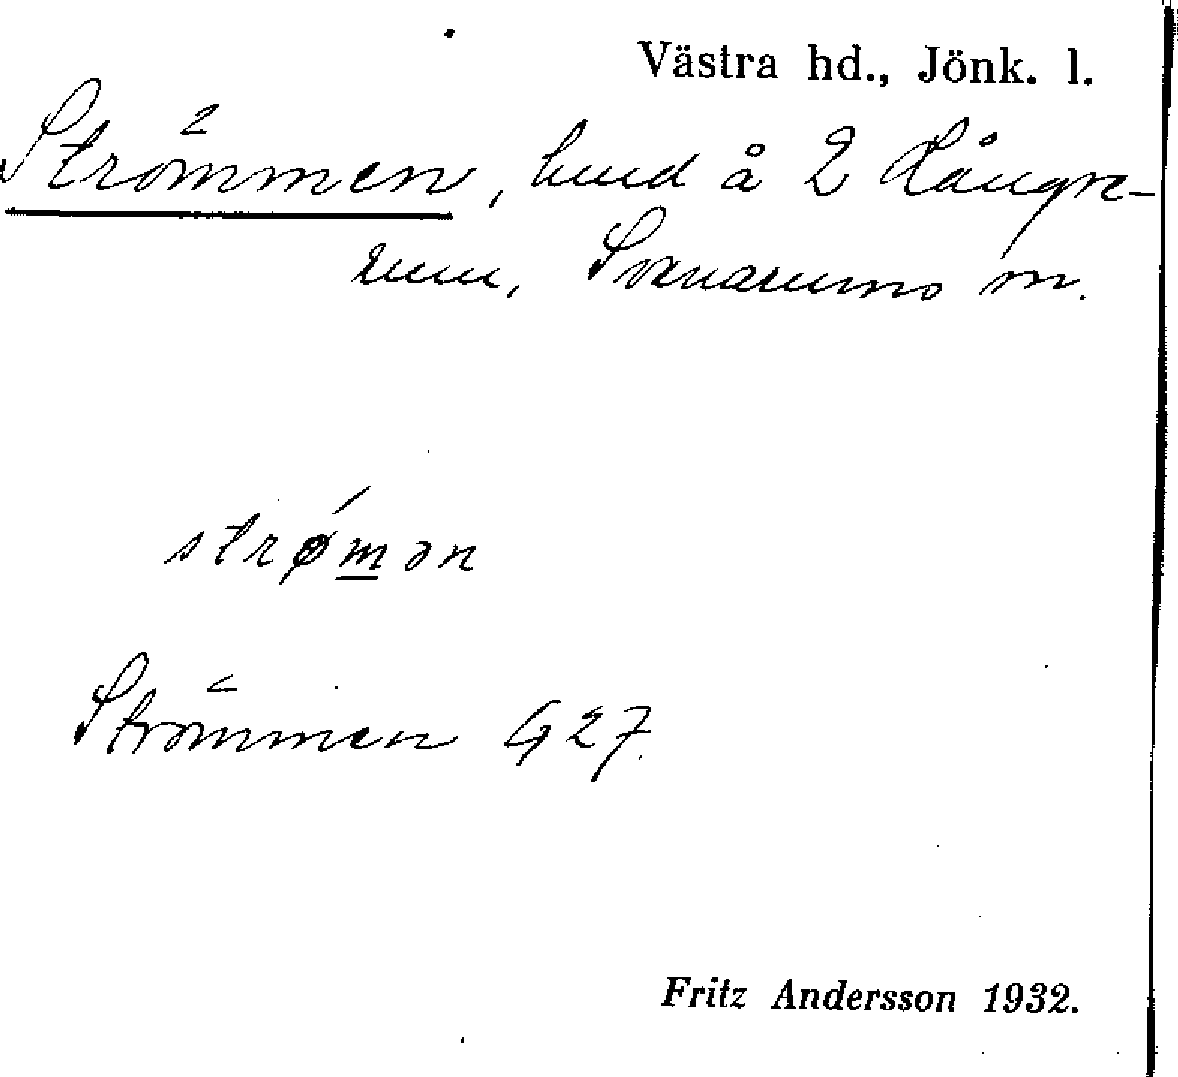 Västra hd., Jönk. l.
Strömmen, lund å 2 Långre-
mm, Svenarums sn.
strǿmən
Strömmen G27.
Fritz Andersson 1932.